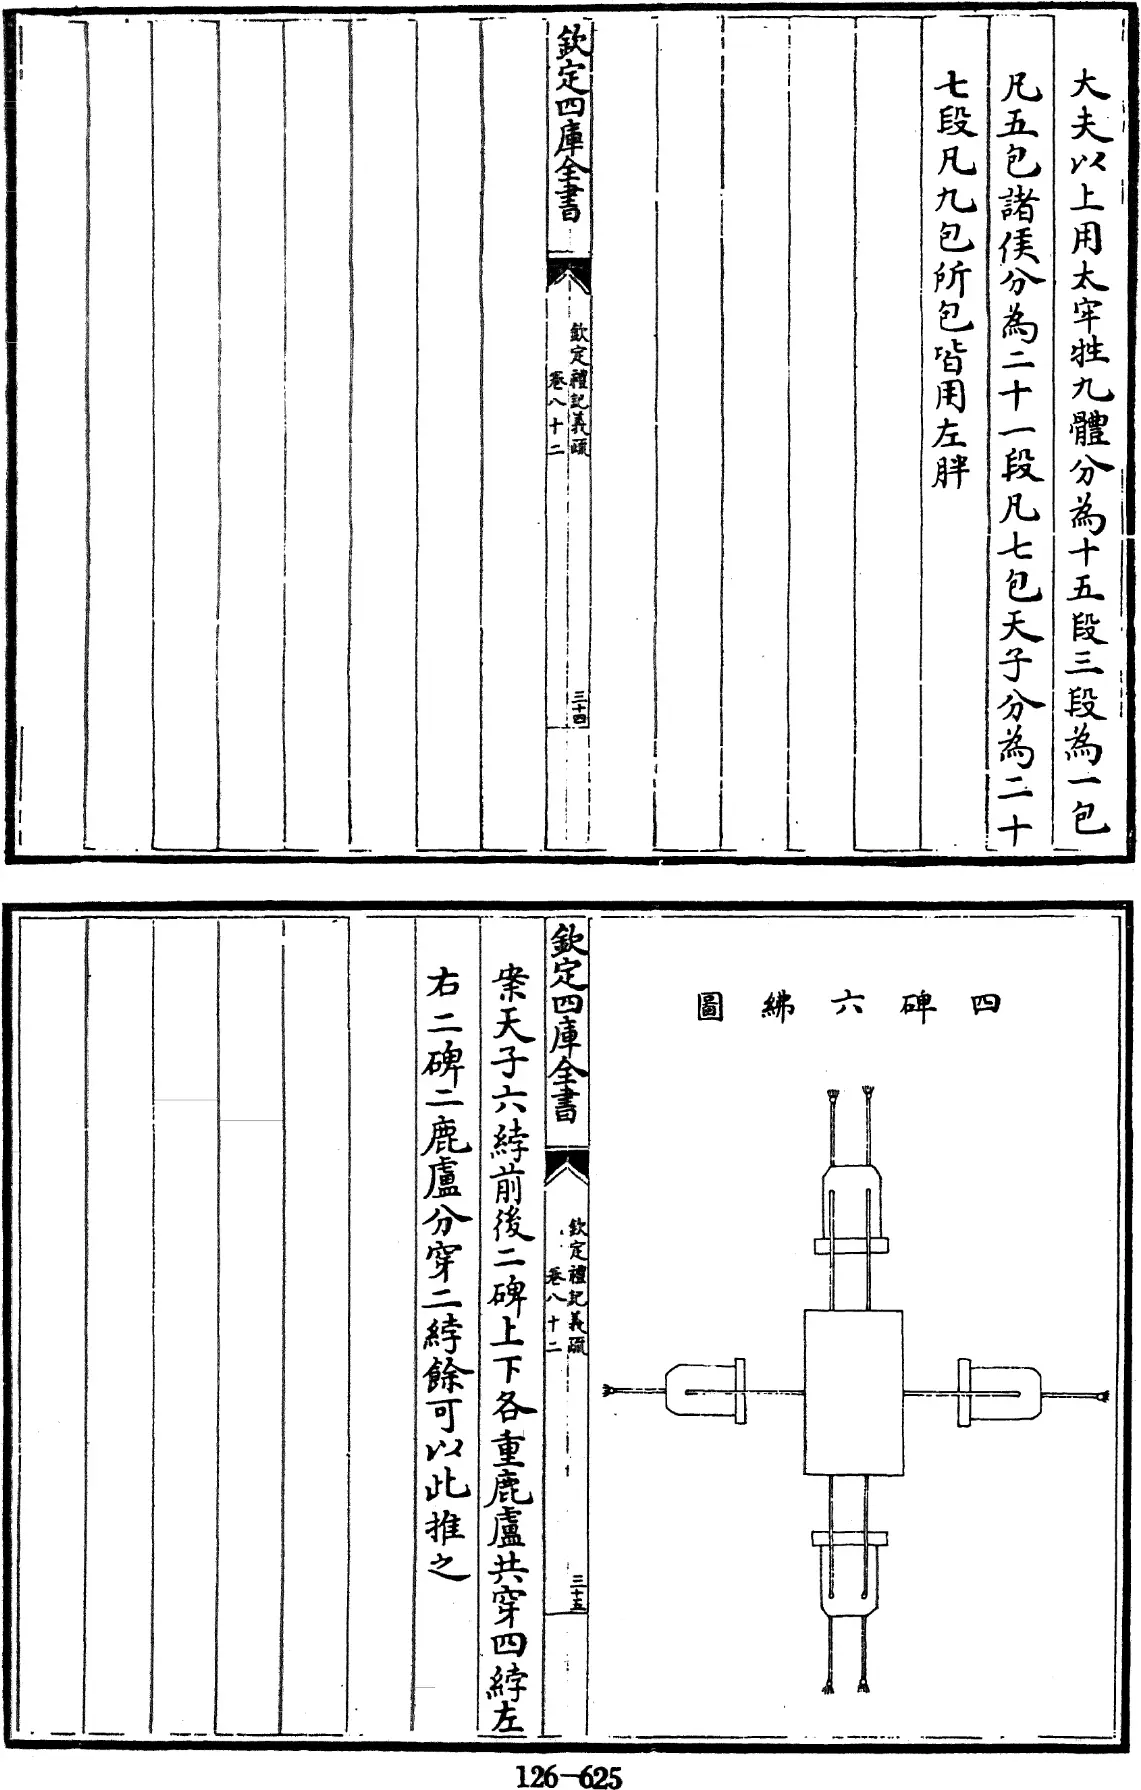 大夫以上用太牢牲九體分為十五段三段為一包
凡五包諸侯分為二十一段凡七包天子分為二十
七段凡九包所包皆用左胖
欽定四庫全書
欽定禮記義疏
卷八十二
三十四
四碑六綍圖
欽定四庫全書
欽定禮記義疏
卷八十二
三十五
案天子六綍前後二碑上下各重鹿盧共穿四綍左
右二碑二鹿盧分穿二綍餘可以此推之
126-625